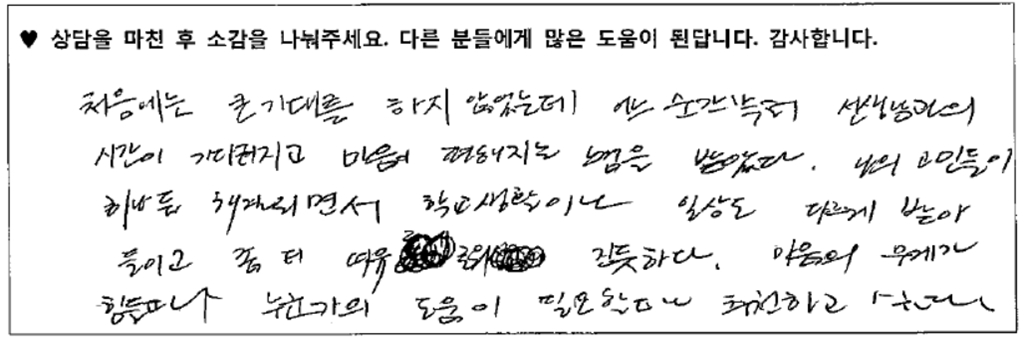 ♥ 상담을 마친 후 소감을 나눠주세요. 다른 분들에게 많은 도움이 된답니다. 감사합니다.
처음에는 큰 기대를 하지 않았는데 어느 순간부터 선생님과의
시간이 기다려지고 마음이 편해지는 법을 받았다. 나의 고민들이
하나 둘 해결되면서 학교생활이나 일상도 다르게 받아
들이고 좀 더 여유 로워 진듯하다. 마음의 무게가
힘들거나 누군가의 도움이 필요할때 추천하고 싶다.